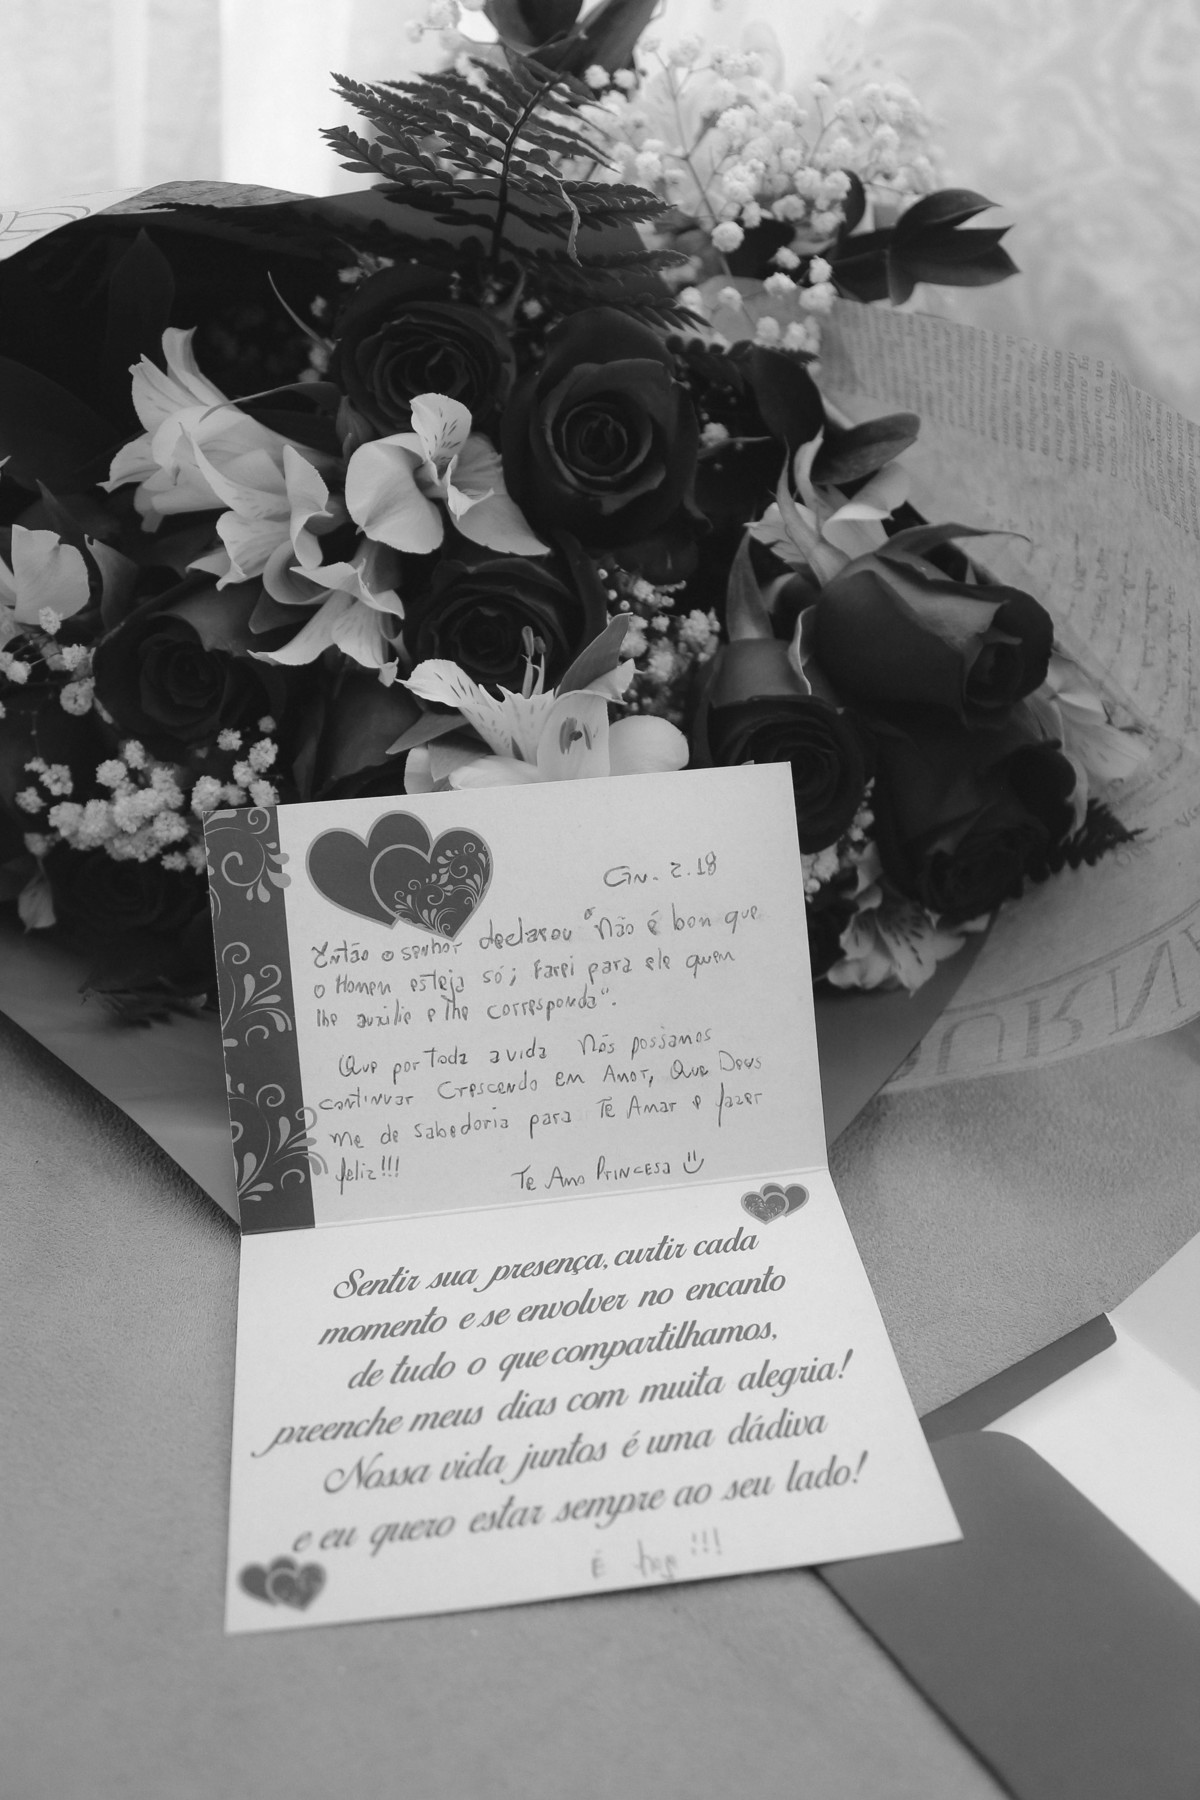 Gn. 2.18
Então o senhor declarou "Não é bom que
o Homem esteja só; Farei para ele quem
lhe auxilie e lhe corresponda".
Que por toda a vida Nós possamos
continuar Crescendo em Amor, Que Deus
me de sabedoria para Te Amar e fazer
feliz!!!
Te Amo Princesa
Sentir sua presença, curtir cada
momento e se envolver no encanto
de tudo o que compartilhamos,
preenche meus dias com muita alegria!
Nossa vida juntos é uma dádiva
e eu quero estar sempre ao seu lado!
É hoje!!!